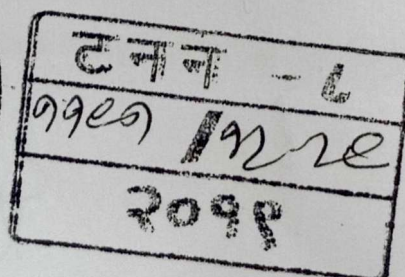 टनन - ८
११९१ / १२-२९
२०१९